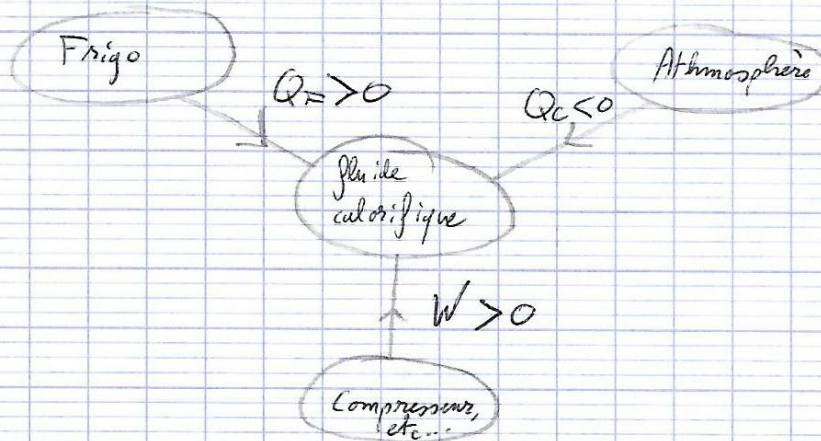 Frigo
Athmosphère
Q_F>0
Q_C<0
fluide
calorifique
W>0
Compresseur,
etc...